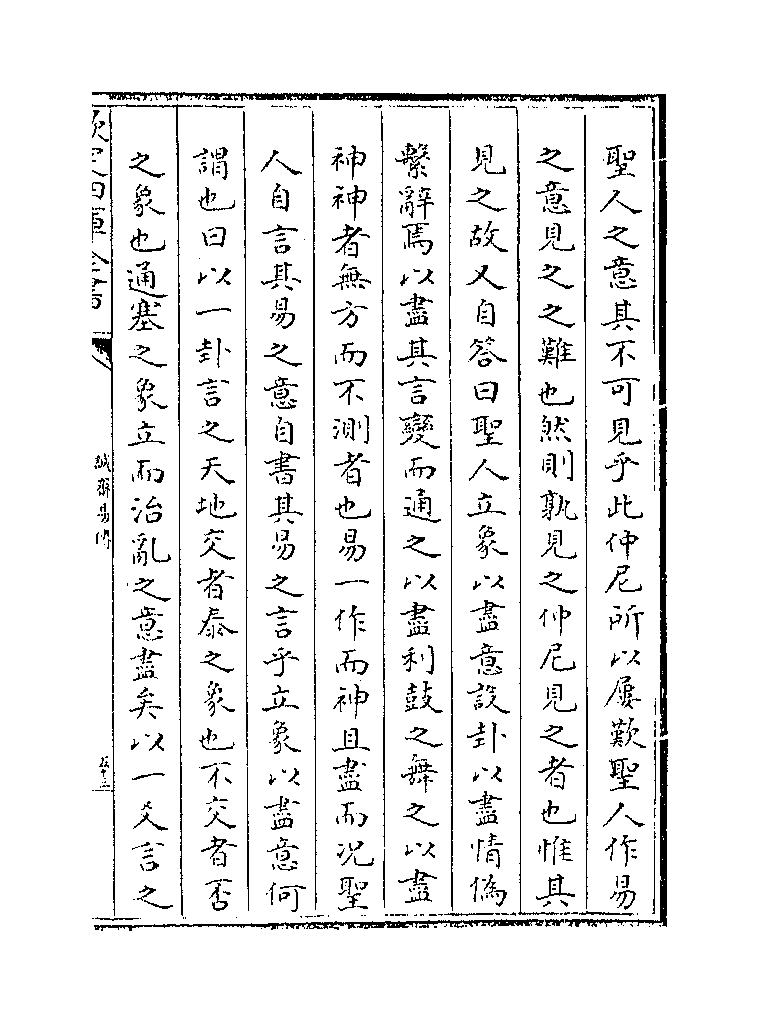 聖人之意其不可見乎此仲尼所以屢歎聖人作易
之意見之之難也然則孰見之仲尼見之者也惟其
見之故又自答曰聖人立象以盡意設卦以盡情偽
繫辭焉以盡其言變而通之以盡利鼓之舞之以盡
神神者無方而不測者也易一作而神且盡而况聖
人自言其易之意自書其易之言乎立象以盡意何
謂也曰以一卦言之天地交者泰之象也不交者否
之象也通塞之象立而治亂之意盡矣以一爻言之
欽定四庫全書
誠齋易傳
五十三